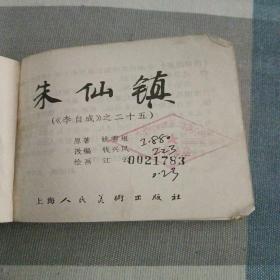 朱仙镇
(《李自成》之二十五)
原著 姚雪垠
改编 钱兴凤
绘画 江云
0021783
1.880
223
0.23
上海人民美術出版社